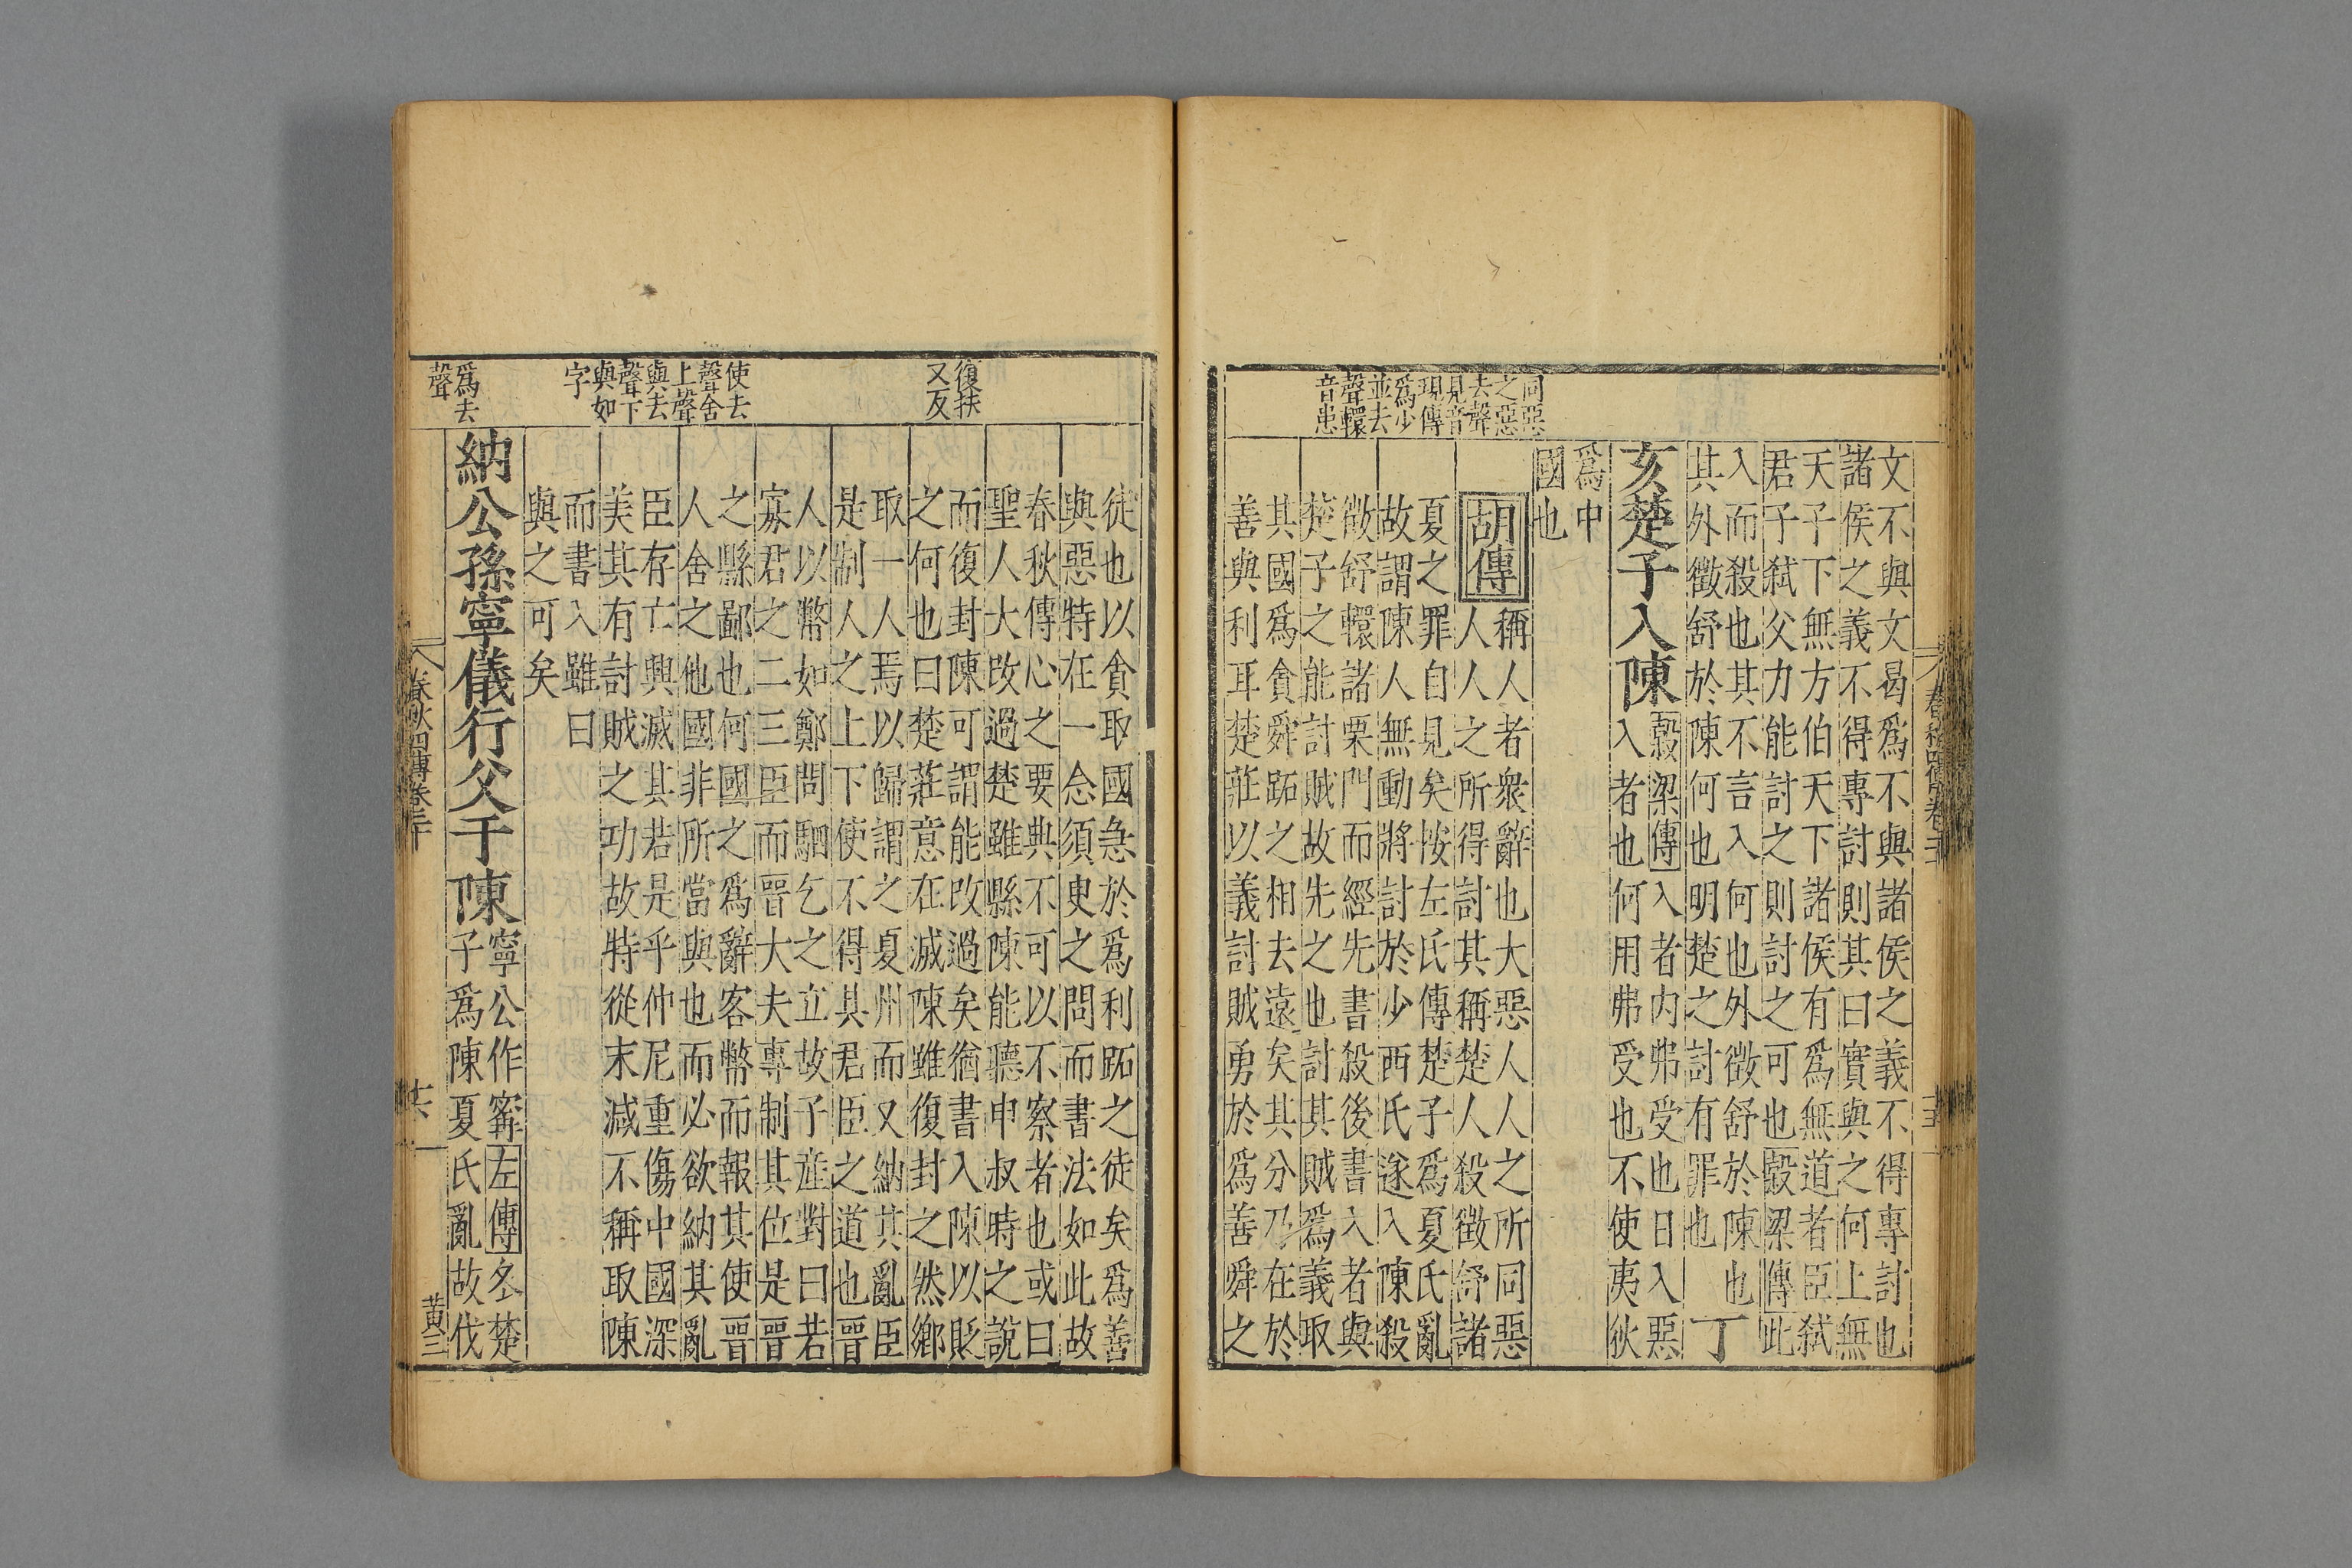 同惡
之惡
去聲
見音
現傳
爲少
並去
聲轘
音患
文不與文曷爲不與諸侯之義不得專討也
諸侯之義不得專討則其曰實與之何上無
天子下無方伯天下諸侯有爲無道者臣弑
君子弑父力能討之則討之可也穀梁傳此
入而殺也其不言入何也外徵舒於陳也
其外徵舒於陳何也明楚之討有罪也丁
亥楚子入陳
穀梁傳入者内弗受也日入惡
入者也何用弗受也不使夷狄
爲中
國也
胡傳
稱人者衆辭也大惡人人之所同惡
人人之所得討其稱楚人殺徵舒諸
夏之罪自見矣按左氏傳楚子爲夏氏亂
故謂陳人無動將討於少西氏遂入陳殺
徵舒轘諸栗門而經先書殺後書入者與
楚子之能討賊故先之也討其賊爲義取
其國爲貪舜跖之相去遠矣其分乃在於
善與利耳楚莊以義討賊勇於爲善舜之
春秋四傳卷二十
復扶
又反
使去
聲舍
上聲
與去
聲下
與如
字
爲去
聲
徒也以貪取國急於爲利跖之徒矣爲善
與惡特在一念須臾之間而書法如此故
春秋傳心之要典不可以不察者也或曰
聖人大改過楚雖縣陳能聽申叔時之說
而復封陳可謂能改過矣猶書入陳以貶
之何也曰楚莊意在滅陳雖復封之然鄉
取一人焉以歸謂之夏州而又納其亂臣
是制人之上下使不得其君臣之道也晉
人以幣如鄭問駟乞之立故子産對曰若
寡君之二三臣而晉大夫專制其位是晉
之縣鄙也何國之爲辭客幣而報其使晉
人舍之他國非所當與也而必欲納其亂
臣存亡興滅其若是乎仲尼重傷中國深
美其有討賊之功故特從末減不稱取陳
而書入雖曰
與之可矣
納公孫寧儀行父于陳
寧公作甯左傳冬楚
子爲陳夏氏亂故伐
春秋四傳卷二十
共
黃三